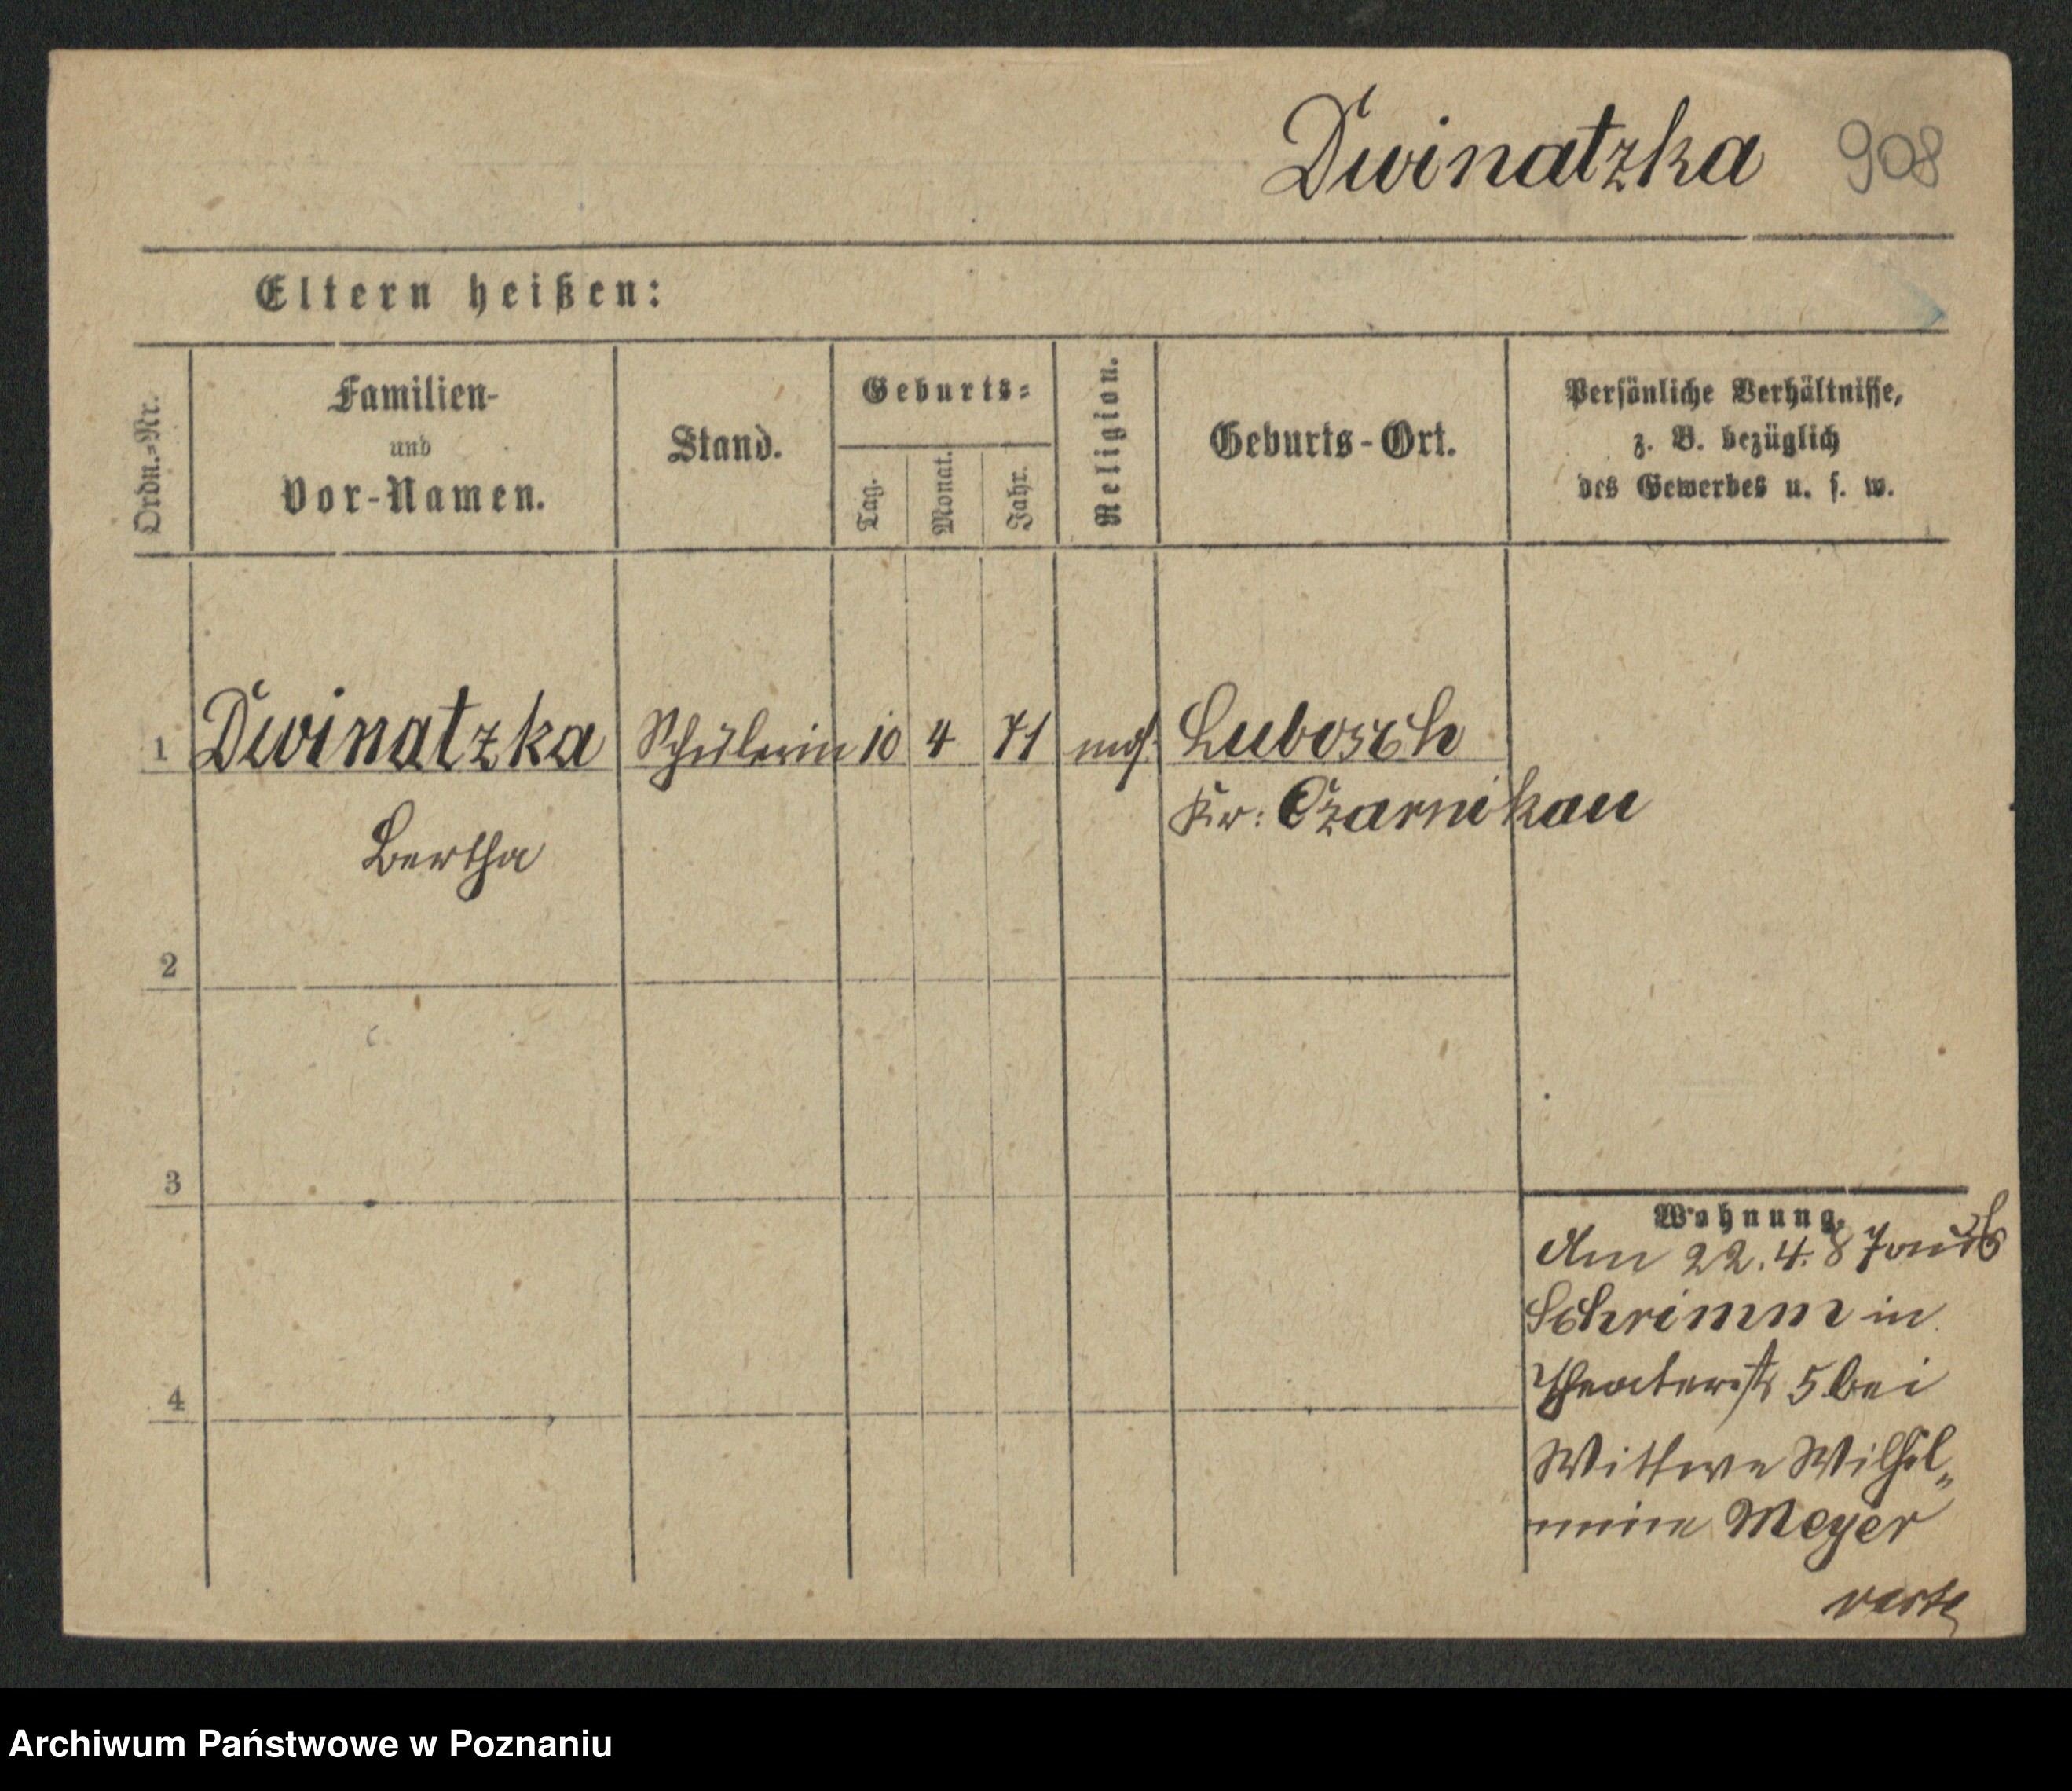 Dwinatzka 908
Eltern heißen:
Ordn.-Nr.
Familien-
und
Vor-Namen.
Stand.
Geburts-
Tag.
Monat.
Jahr.
Religion.
Geburts-Ort.
Persönliche Verhältnisse,
z. B. bezüglich
des Gewerbes u. s. w.
1 Dwinatzka Schülerin 10 4 71 mos. Lubosch
Kr: Czarnikau
Bertha
2
3
4
Wohnung.
Am 22.4.87 aus
Schrimm in
Theaterstr 5 bei
Wittwe Wilhel„
mine Meyer
Archiwum Państwowe w Poznaniu